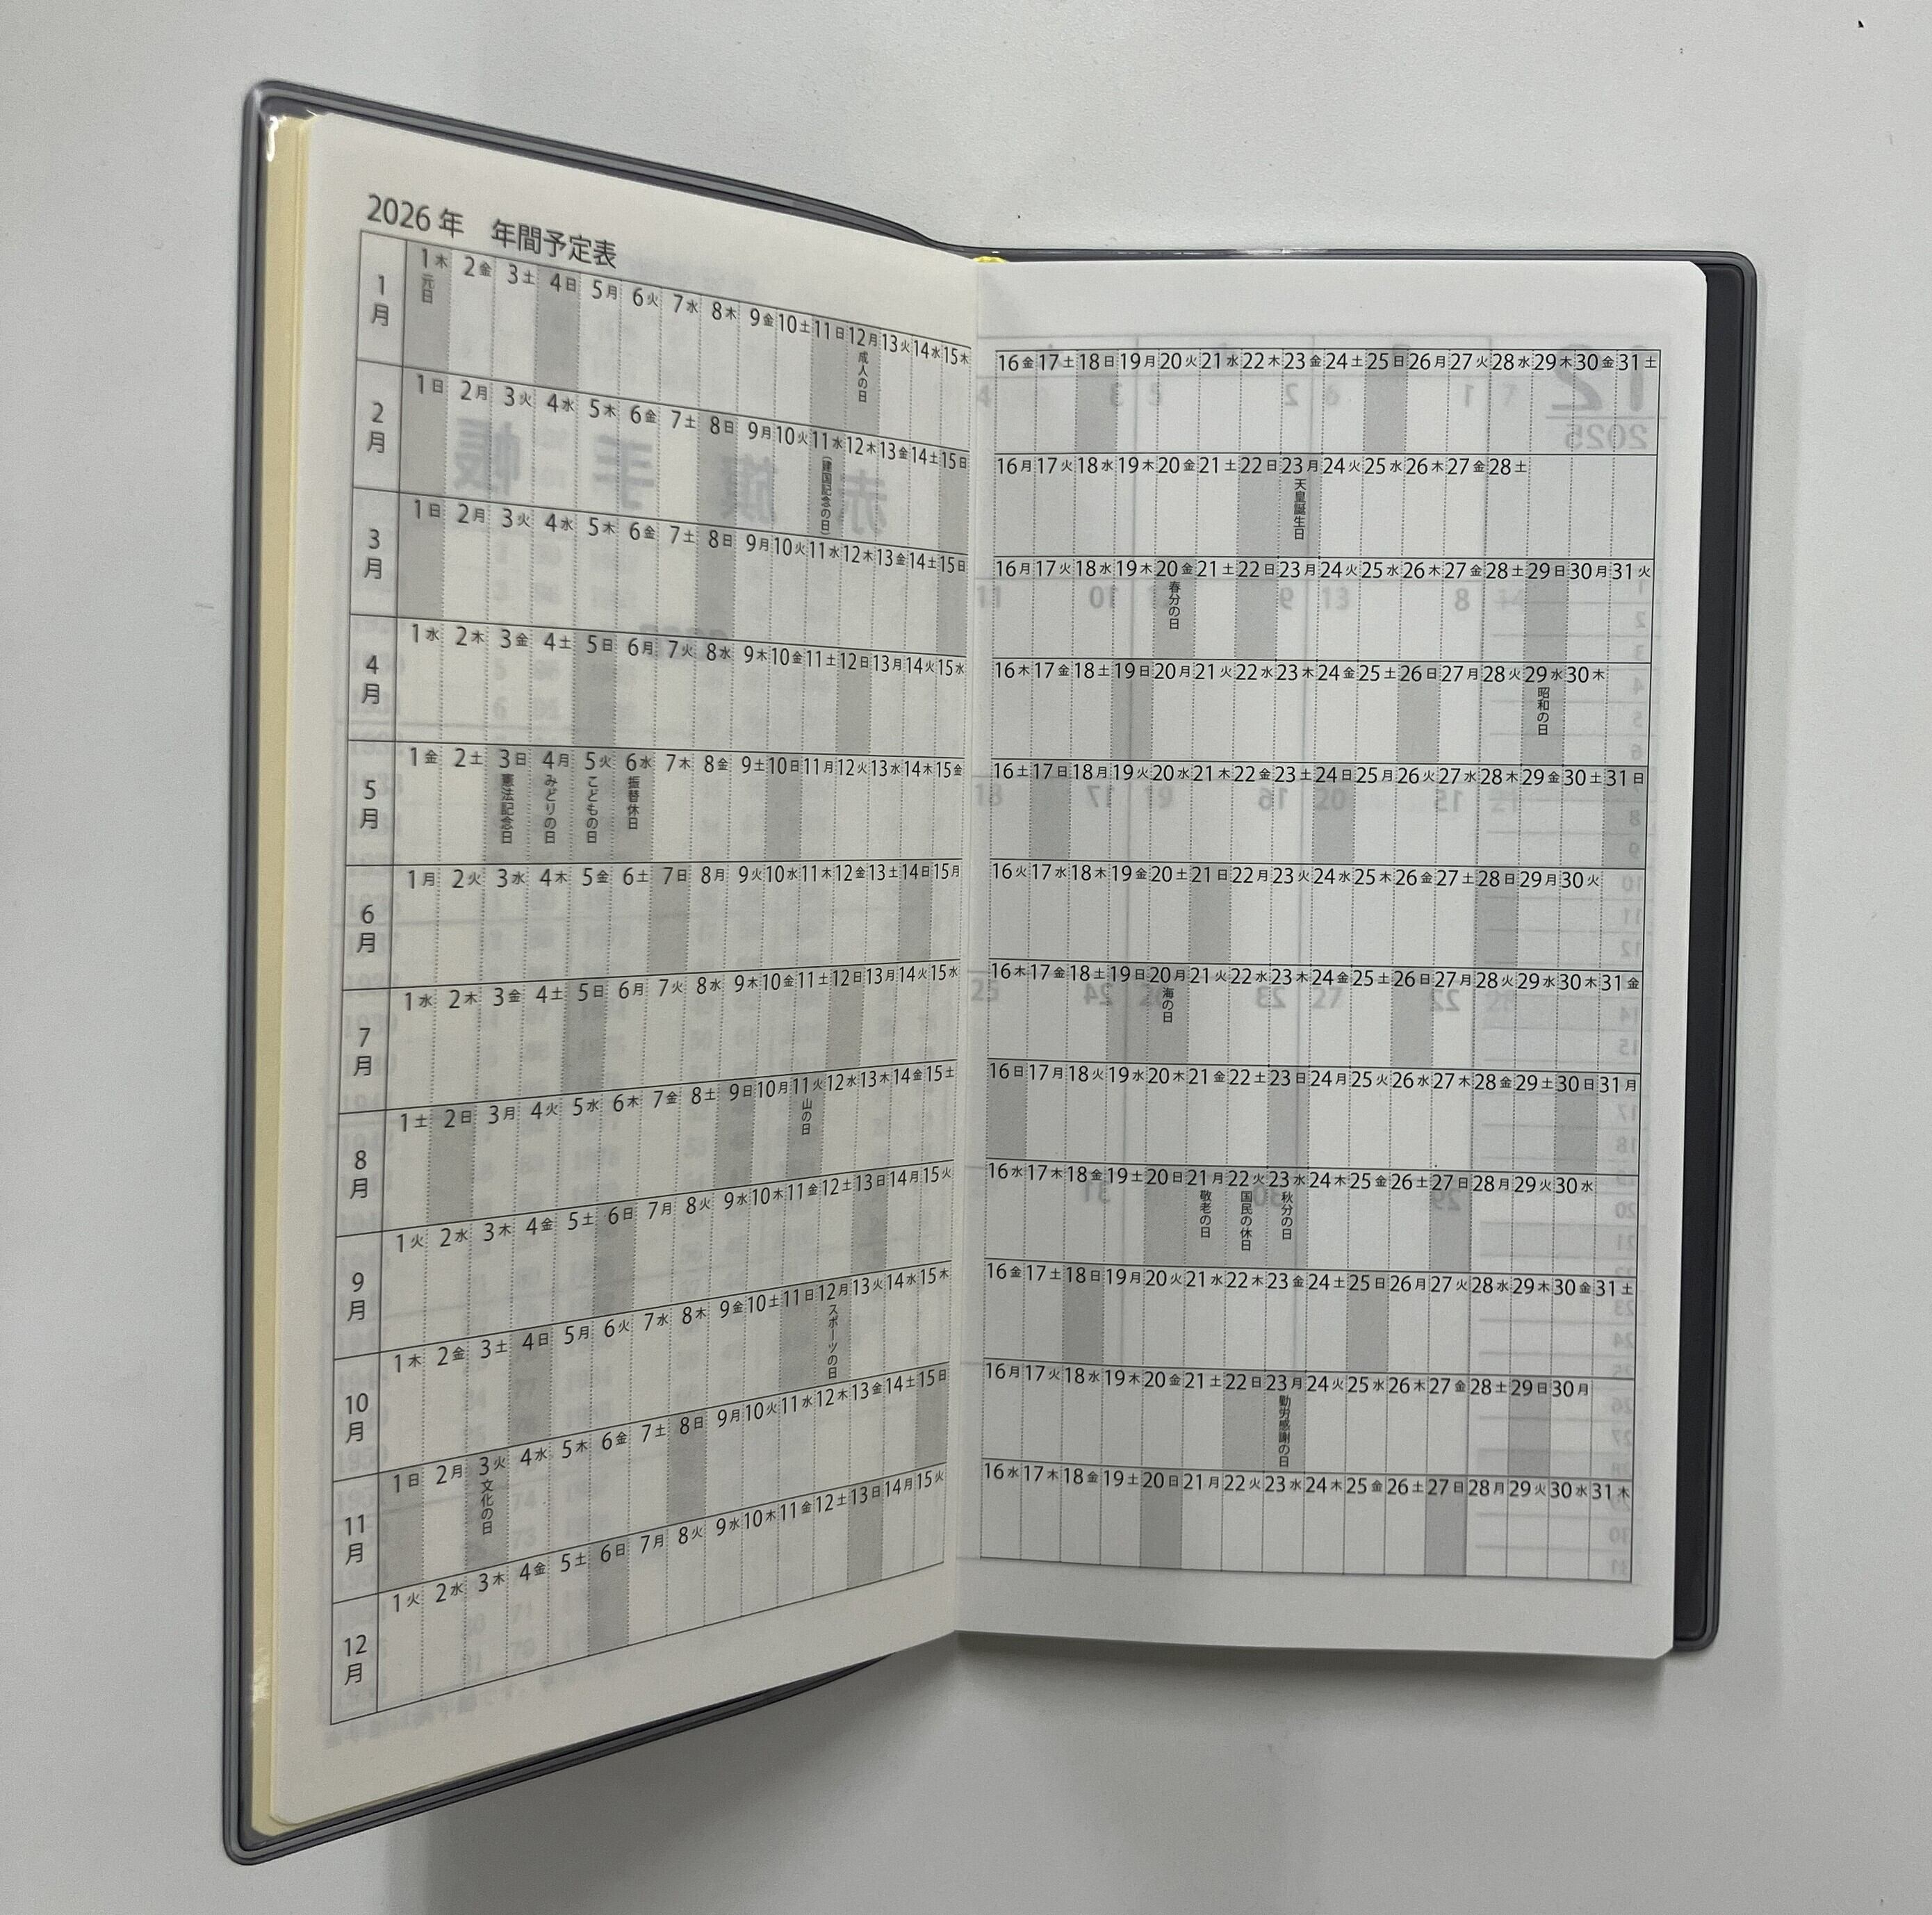 2026年　年間予定表
1月
1木 2金 3土 4日 5月 6火 7水 8木 9金 10土 11日 12月 13火 14水 15木 16金 17土 18日 19月 20火 21水 22木 23金 24土 25日 26月 27火 28水 29木 30金 31土
元日 成人の日
2月
1日 2月 3火 4水 5木 6金 7土 8日 9月 10火 11水 12木 13金 14土 15日 16月 17火 18水 19木 20金 21土 22日 23月 24火 25水 26木 27金 28土
(建国記念の日) 天皇誕生日
3月
1日 2月 3火 4水 5木 6金 7土 8日 9月 10火 11水 12木 13金 14土 15日 16月 17火 18水 19木 20金 21土 22日 23月 24火 25水 26木 27金 28土 29日 30月 31火
春分の日
4月
1水 2木 3金 4土 5日 6月 7火 8水 9木 10金 11土 12日 13月 14火 15水 16木 17金 18土 19日 20月 21火 22水 23木 24金 25土 26日 27月 28火 29水 30木
昭和の日
5月
1金 2土 3日 4月 5火 6水 7木 8金 9土 10日 11月 12火 13水 14木 15金 16土 17日 18月 19火 20水 21木 22金 23土 24日 25月 26火 27水 28木 29金 30土 31日
憲法記念日 みどりの日 こどもの日 振替休日
6月
1月 2火 3水 4木 5金 6土 7日 8月 9火 10水 11木 12金 13土 14日 15月 16火 17水 18木 19金 20土 21日 22月 23火 24水 25木 26金 27土 28日 29月 30火
7月
1水 2木 3金 4土 5日 6月 7火 8水 9木 10金 11土 12日 13月 14火 15水 16木 17金 18土 19日 20月 21火 22水 23木 24金 25土 26日 27月 28火 29水 30木 31金
海の日
8月
1土 2日 3月 4火 5水 6木 7金 8土 9日 10月 11火 12水 13木 14金 15土 16日 17月 18火 19水 20木 21金 22土 23日 24月 25火 26水 27木 28金 29土 30日 31月
山の日
9月
1火 2水 3木 4金 5土 6日 7月 8火 9水 10木 11金 12土 13日 14月 15火 16水 17木 18金 19土 20日 21月 22火 23水 24木 25金 26土 27日 28月 29火 30水
敬老の日 国民の休日 秋分の日
10月
1木 2金 3土 4日 5月 6火 7水 8木 9金 10土 11日 12月 13火 14水 15木 16金 17土 18日 19月 20火 21水 22木 23金 24土 25日 26月 27火 28水 29木 30金 31土
スポーツの日
11月
1日 2月 3火 4水 5木 6金 7土 8日 9月 10火 11水 12木 13金 14土 15日 16月 17火 18水 19木 20金 21土 22日 23月 24火 25水 26木 27金 28土 29日 30月
文化の日 勤労感謝の日
12月
1火 2水 3木 4金 5土 6日 7月 8火 9水 10木 11金 12土 13日 14月 15火 16水 17木 18金 19土 20日 21月 22火 23水 24木 25金 26土 27日 28月 29火 30水 31木